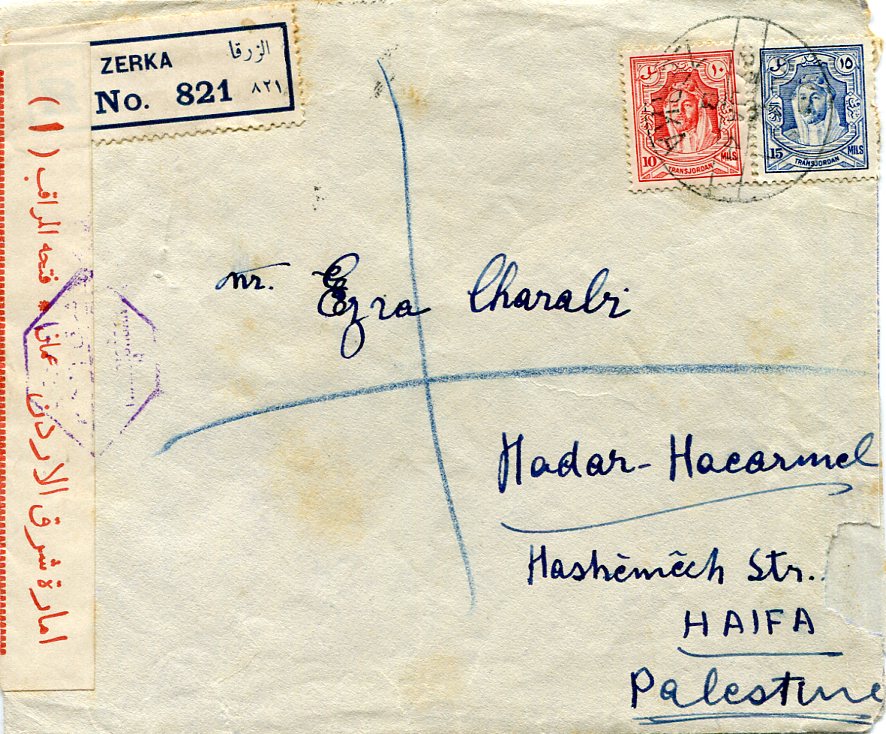 ZERKA الزرقا
No. 821 ٨٢١
١٠
10 MILS
TRANSJORDAN
١٥
15 MILS
TRANSJORDAN
امارة شرق الاردن عمان * فتحه المراقب ( ١ )
mr. Ezra Charabi
Hadar-Hacarmel
Str.
HAIFA
Palestine